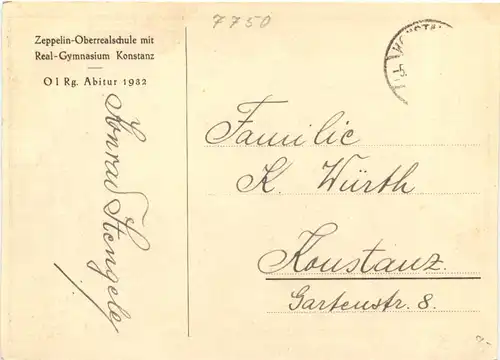 7750
Zeppelin-Oberrealschule mit
Real-Gymnasium Konstanz
O I Rg. Abitur 1932
Konrad Stengele
KONSTA
Familie
K. Würth
Konstanz.
Gartenstr. 8.